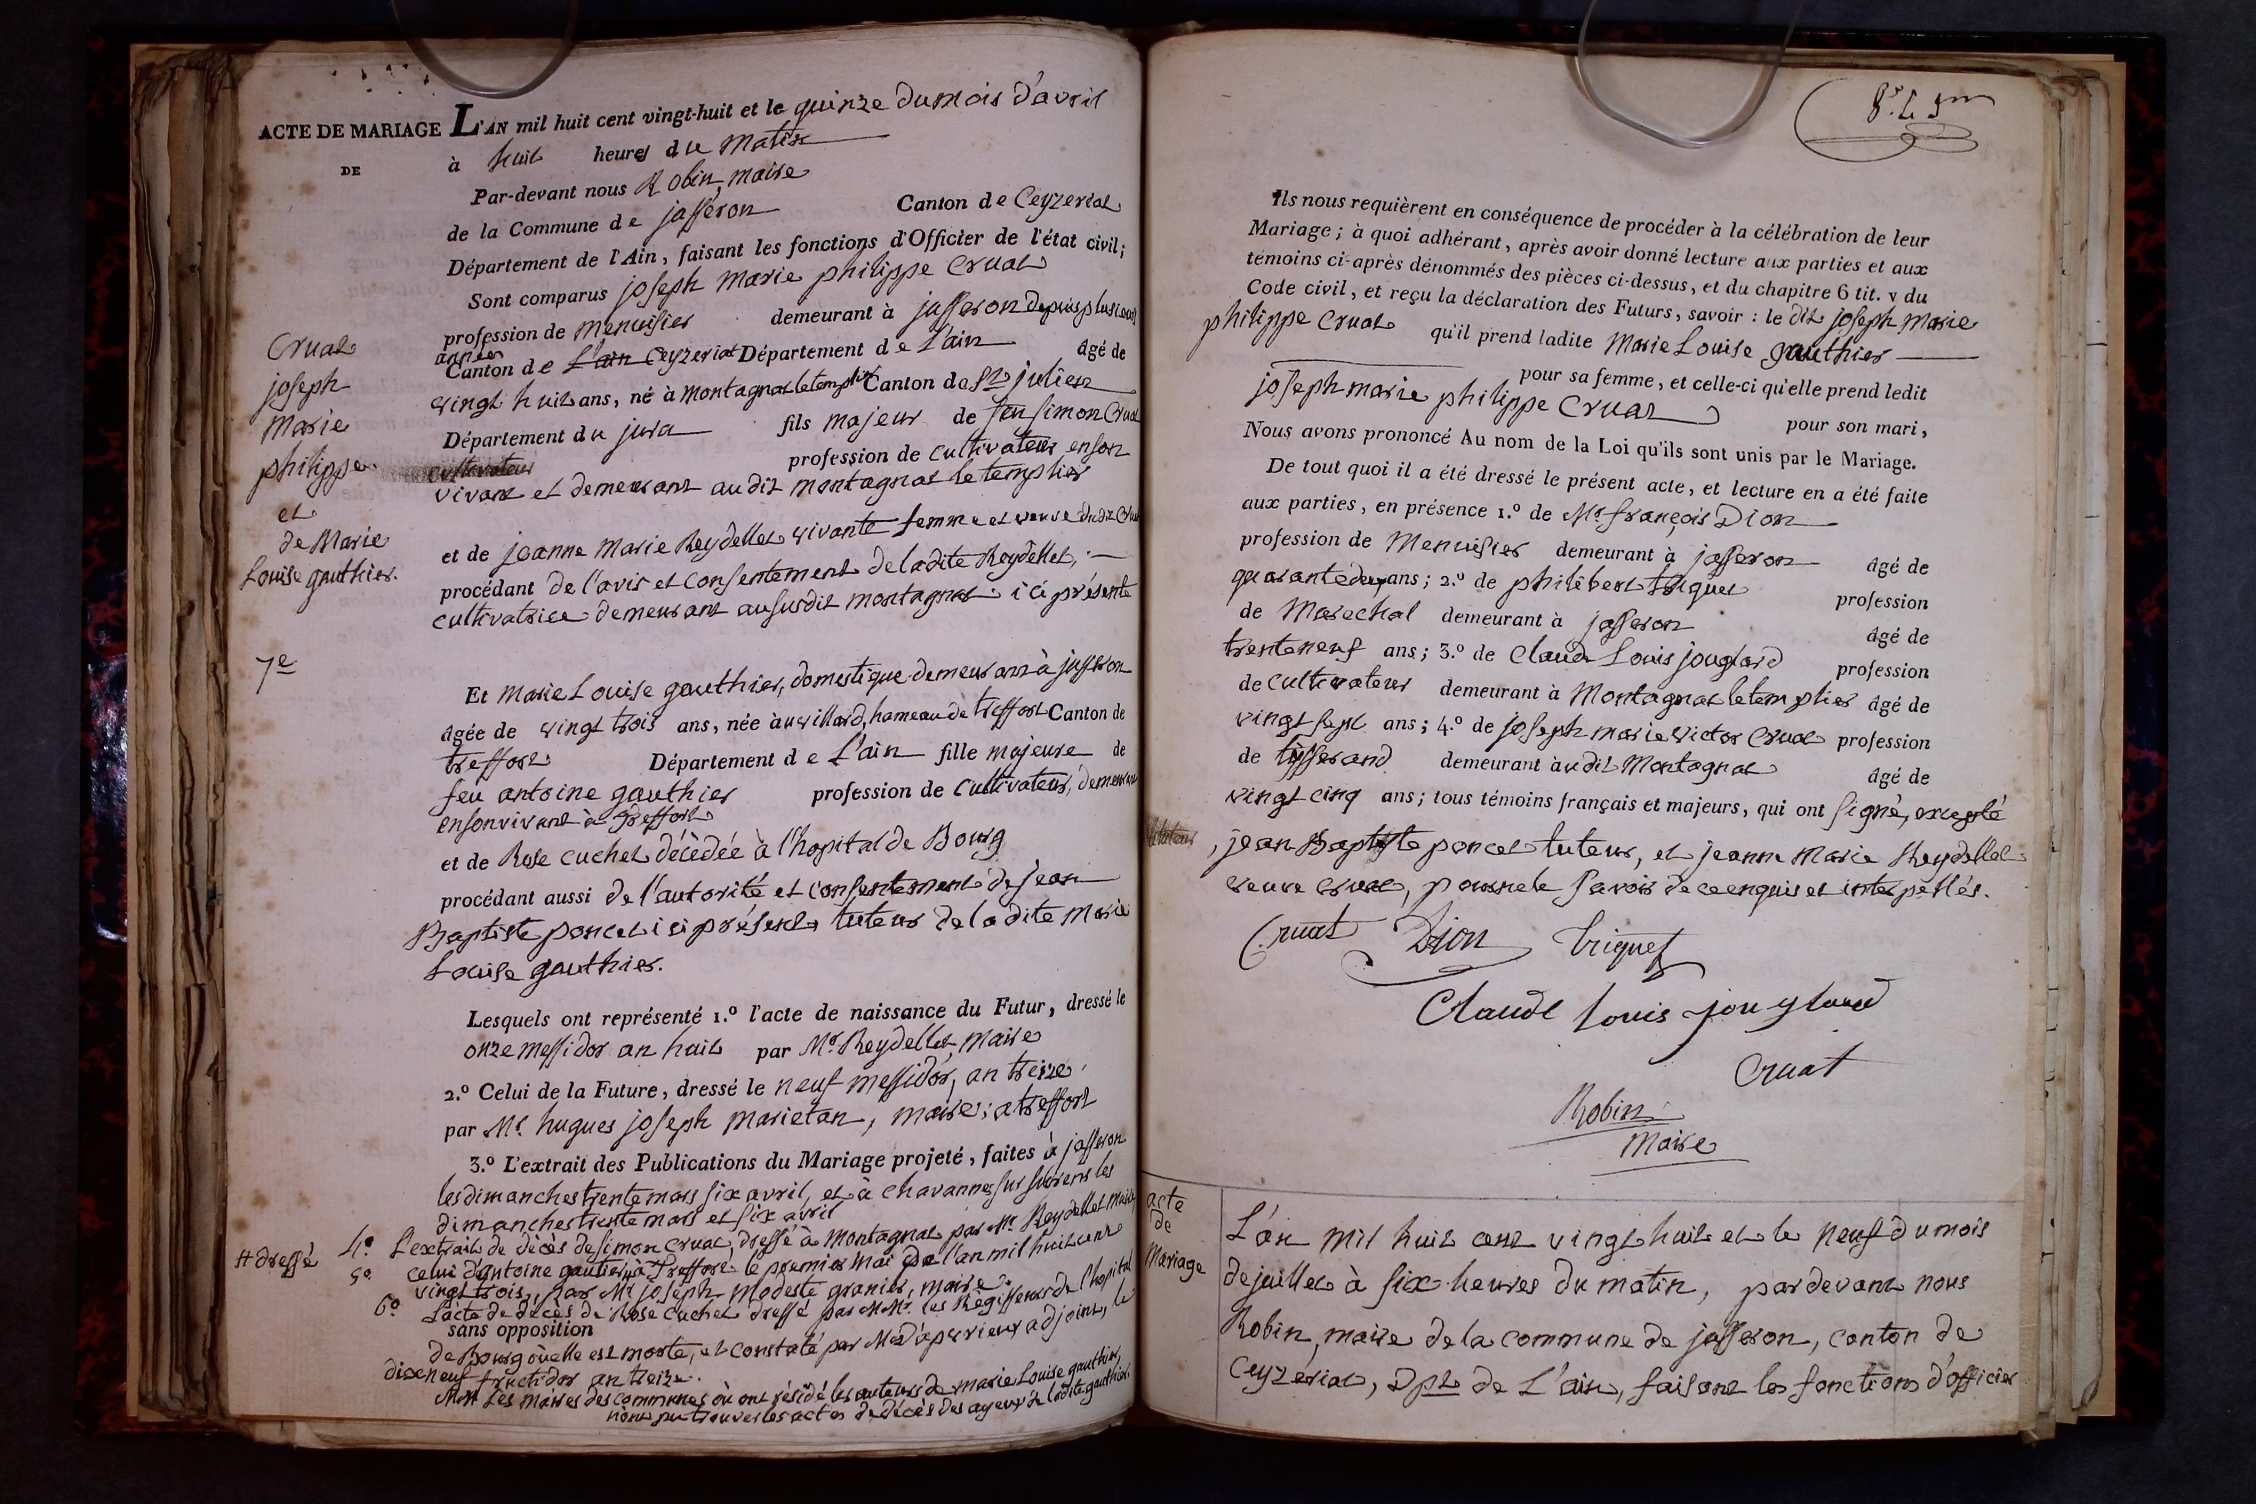 ACTE DE MARIAGE
DE
Cruat
joseph
Marie
philippe
et
de Marie
Louise gauthier.
7e
L'AN mil huit cent vingt-huit et le quinze du mois d'avril
à huit heures du matin
Par-devant nous Robin, maire
de la Commune de jasseron Canton de Ceyzeriat
Département de l'Ain, faisant les fonctions d'Officier de l'état civil;
Sont comparus joseph Marie philippe Cruat
profession de menuisier demeurant à jasseron depuis plusieurs
années
Canton de L'ain Ceyzeriat Département de L'ain âgé de
vingt huit ans, né à montagnat le templier Canton de St julien
Département du jura fils majeur de feu Simon Cruat
cultivateur profession de cultivateur en son
vivant et demeurant audit montagnat le templier
et de jeanne Marie Reydellet vivante femme et veuve dudit Cruat
procédant de l'avis et consentement de ladite Reydellet,
cultivatrice demeurant ausudit montagnat ici présente
Et Marie Louise gauthier, domestique demeurant à jasseron
âgée de vingt trois ans, née à uvillard, hameau de treffort Canton de
treffort Département de L'ain fille majeure de
feu antoine gauthier profession de cultivateur, demeurant
en son vivant à Treffort
et de Rose cuchet décèdée à l'hopital de Bourg
procédant aussi de l'autorité et consentement de jean
Baptiste poncet ici présent, tuteur de la dite Marie
Louise gauthier.
Lesquels ont représenté 1.º l'acte de naissance du Futur, dressé le
onze messidor an huit par Mr Reydellet maire
2.º Celui de la Future, dressé le neuf messidor, an treize,
par Mr. hugues joseph marietan, maire, a treffort
3.º L'extrait des Publications du Mariage projeté, faites à jasseron
les dimanches trente mars six avril, et à chavannes sur suran les
dimanches trente mars et six avril
4º L'extrait de décès de Simon cruat, dressé à Montagnat par Mr Reydellet maire,
# dressé
5º celui d'antoine gautier # à Treffort le premier mai de l'an mil huit cent
vingt trois, par Mr joseph modeste granier, maire.
6º L'acte de décès de Rose cuchet dressé par MMrs les Régisseurs de l'hopital
sans opposition
de Bourg où elle est morte, et constaté par adjoint, le
dix neuf fructidor an treize.
MM les maires des communes où ont résidé les auteurs de marie Louise gauthier,
n'ont pu trouver les actes de décès des ayeux de ladite gauthier.
Ils nous requièrent en conséquence de procéder à la célébration de leur
Mariage; à quoi adhérant, après avoir donné lecture aux parties et aux
témoins ci-après dénommés des pièces ci-dessus, et du chapitre 6 tit. v du
Code civil, et reçu la déclaration des Futurs, savoir : le dit joseph Marie
philippe Cruat qu'il prend ladite Marie Louise gauthier
pour sa femme, et celle-ci qu'elle prend ledit
joseph marie philippe Cruat pour son mari,
Nous avons prononcé Au nom de la Loi qu'ils sont unis par le Mariage.
De tout quoi il a été dressé le présent acte, et lecture en a été faite
aux parties, en présence 1.º de Mr françois Dion
profession de Menuisier demeurant à jasseron âgé de
quarante deux ans; 2.º de philibert triquet profession
de Marechal demeurant à jasseron âgé de
trente neuf ans; 3.º de Claude Louis jouglard profession
de cultivateur demeurant à Montagnat le templier âgé de
vingt sept ans; 4.º de joseph marie victor Cruat profession
de tisserand demeurant audit Montagnat âgé de
vingt cinq ans; tous témoins français et majeurs, qui ont signé, excepté
jean Baptiste poncet tuteur, et jeanne Marie Reydellet
veuve cruat, pour ne le savoir de ce enquis et interpellés.
Cruat Dion triquet
Claude louis jouglard
Cruat
Robin
Maire
acte
de
Mariage
L'an mil huit cent vingt huit et le neuf du mois
de juillet à six heures du matin, pardevant nous
Robin, maire de la commune de jasseron, canton de
Ceyzériat, Dpt de L'ain, faisant les fonctions d'officier